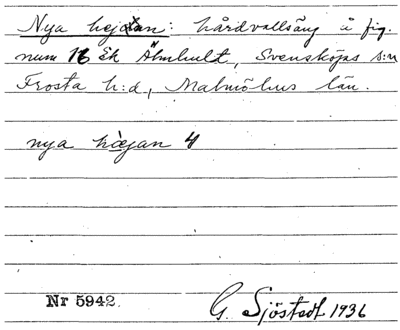 Nya hejan: hårdvallsäng å fig.
num 16 Ek Älmhult, Svensköjas s:n
Frosta h:d, Malmöhus län.
nya hæjan 4
Nr 5942.
G. Sjöstedt 1936